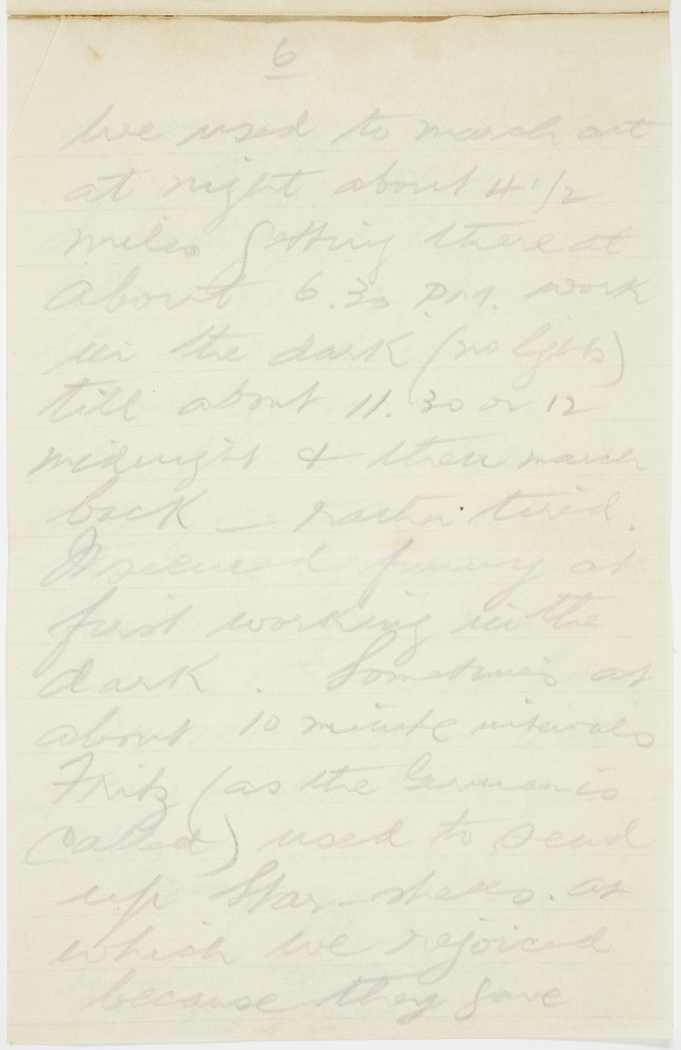 6
We used to march out
at night about 4 1/2
miles getting there at
about 6.30 P.M. work
in the dark (no lights)
till about 11.30 or 12
midnight & then march
back — rather tired.
It seemed funny at
first working in the
dark. Sometimes at
about 10 minute intervals
Fritz (as the German is
called) used to send
up Star-shells. at
which we rejoiced
because they gave